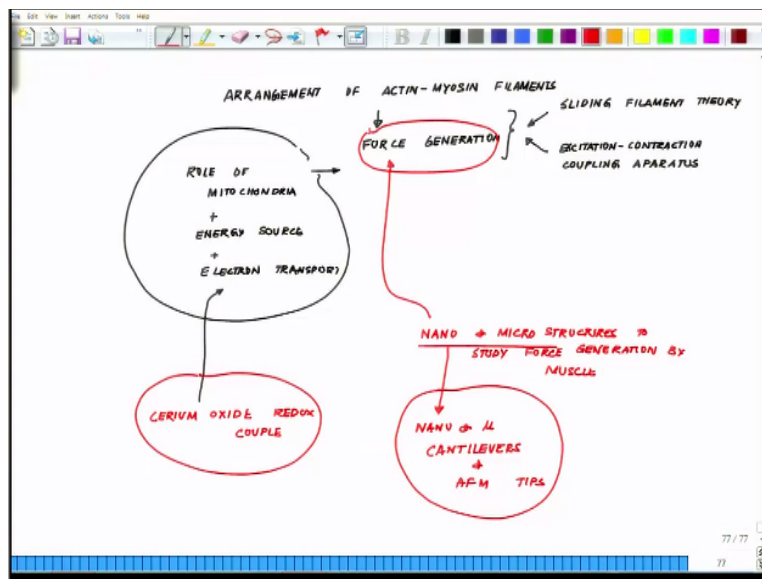 File Edit View Insert Actions Tools Help
B I
ARRANGEMENT OF ACTIN-MYOSIN FILAMENTS
SLIDING FILAMENT THEORY
FORCE GENERATION
EXCITATION-CONTRACTION
COUPLING APPARATUS
ROLE OF
MITOCHONDRIA
+
ENERGY SOURCE
+
ELECTRON TRANSPORT
NANO & MICRO STRUCTRIRES TO
STUDY FORCE GENERATION BY
MUSCLE
CERIUM OXIDE REDOX
COUPLE
NANO & μ
CANTILEVERS
&
AFM TIPS
77 / 77
77